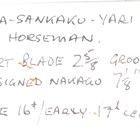 A-SANKAKU-YARI
HORSEMAN.
RT BLADE 2 5/8 GROO
SIGNED NAKAGO 7 1/8"
E 16th/EARLY 17th CE